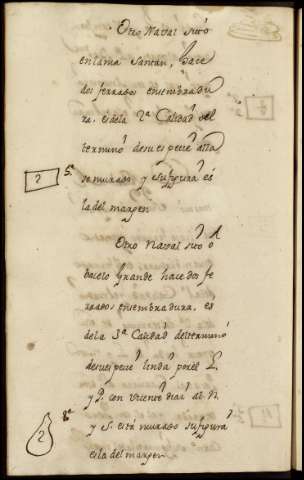 Otro Nabal sito
en lama Santan, hace
dos ferrados ensembradu
ra, es dela 2ª Calidad del
termino
2 5ª se murado y su figura es
la del margen
Otro Nabal sito o
bacelo grande hace dos fe
rrados ensembradura, es
dela 3ª Calidad deltermino
linda por el L.
y P. con Vicente diaz al N.
2 8ª y S. está murado su figura
es la del margen